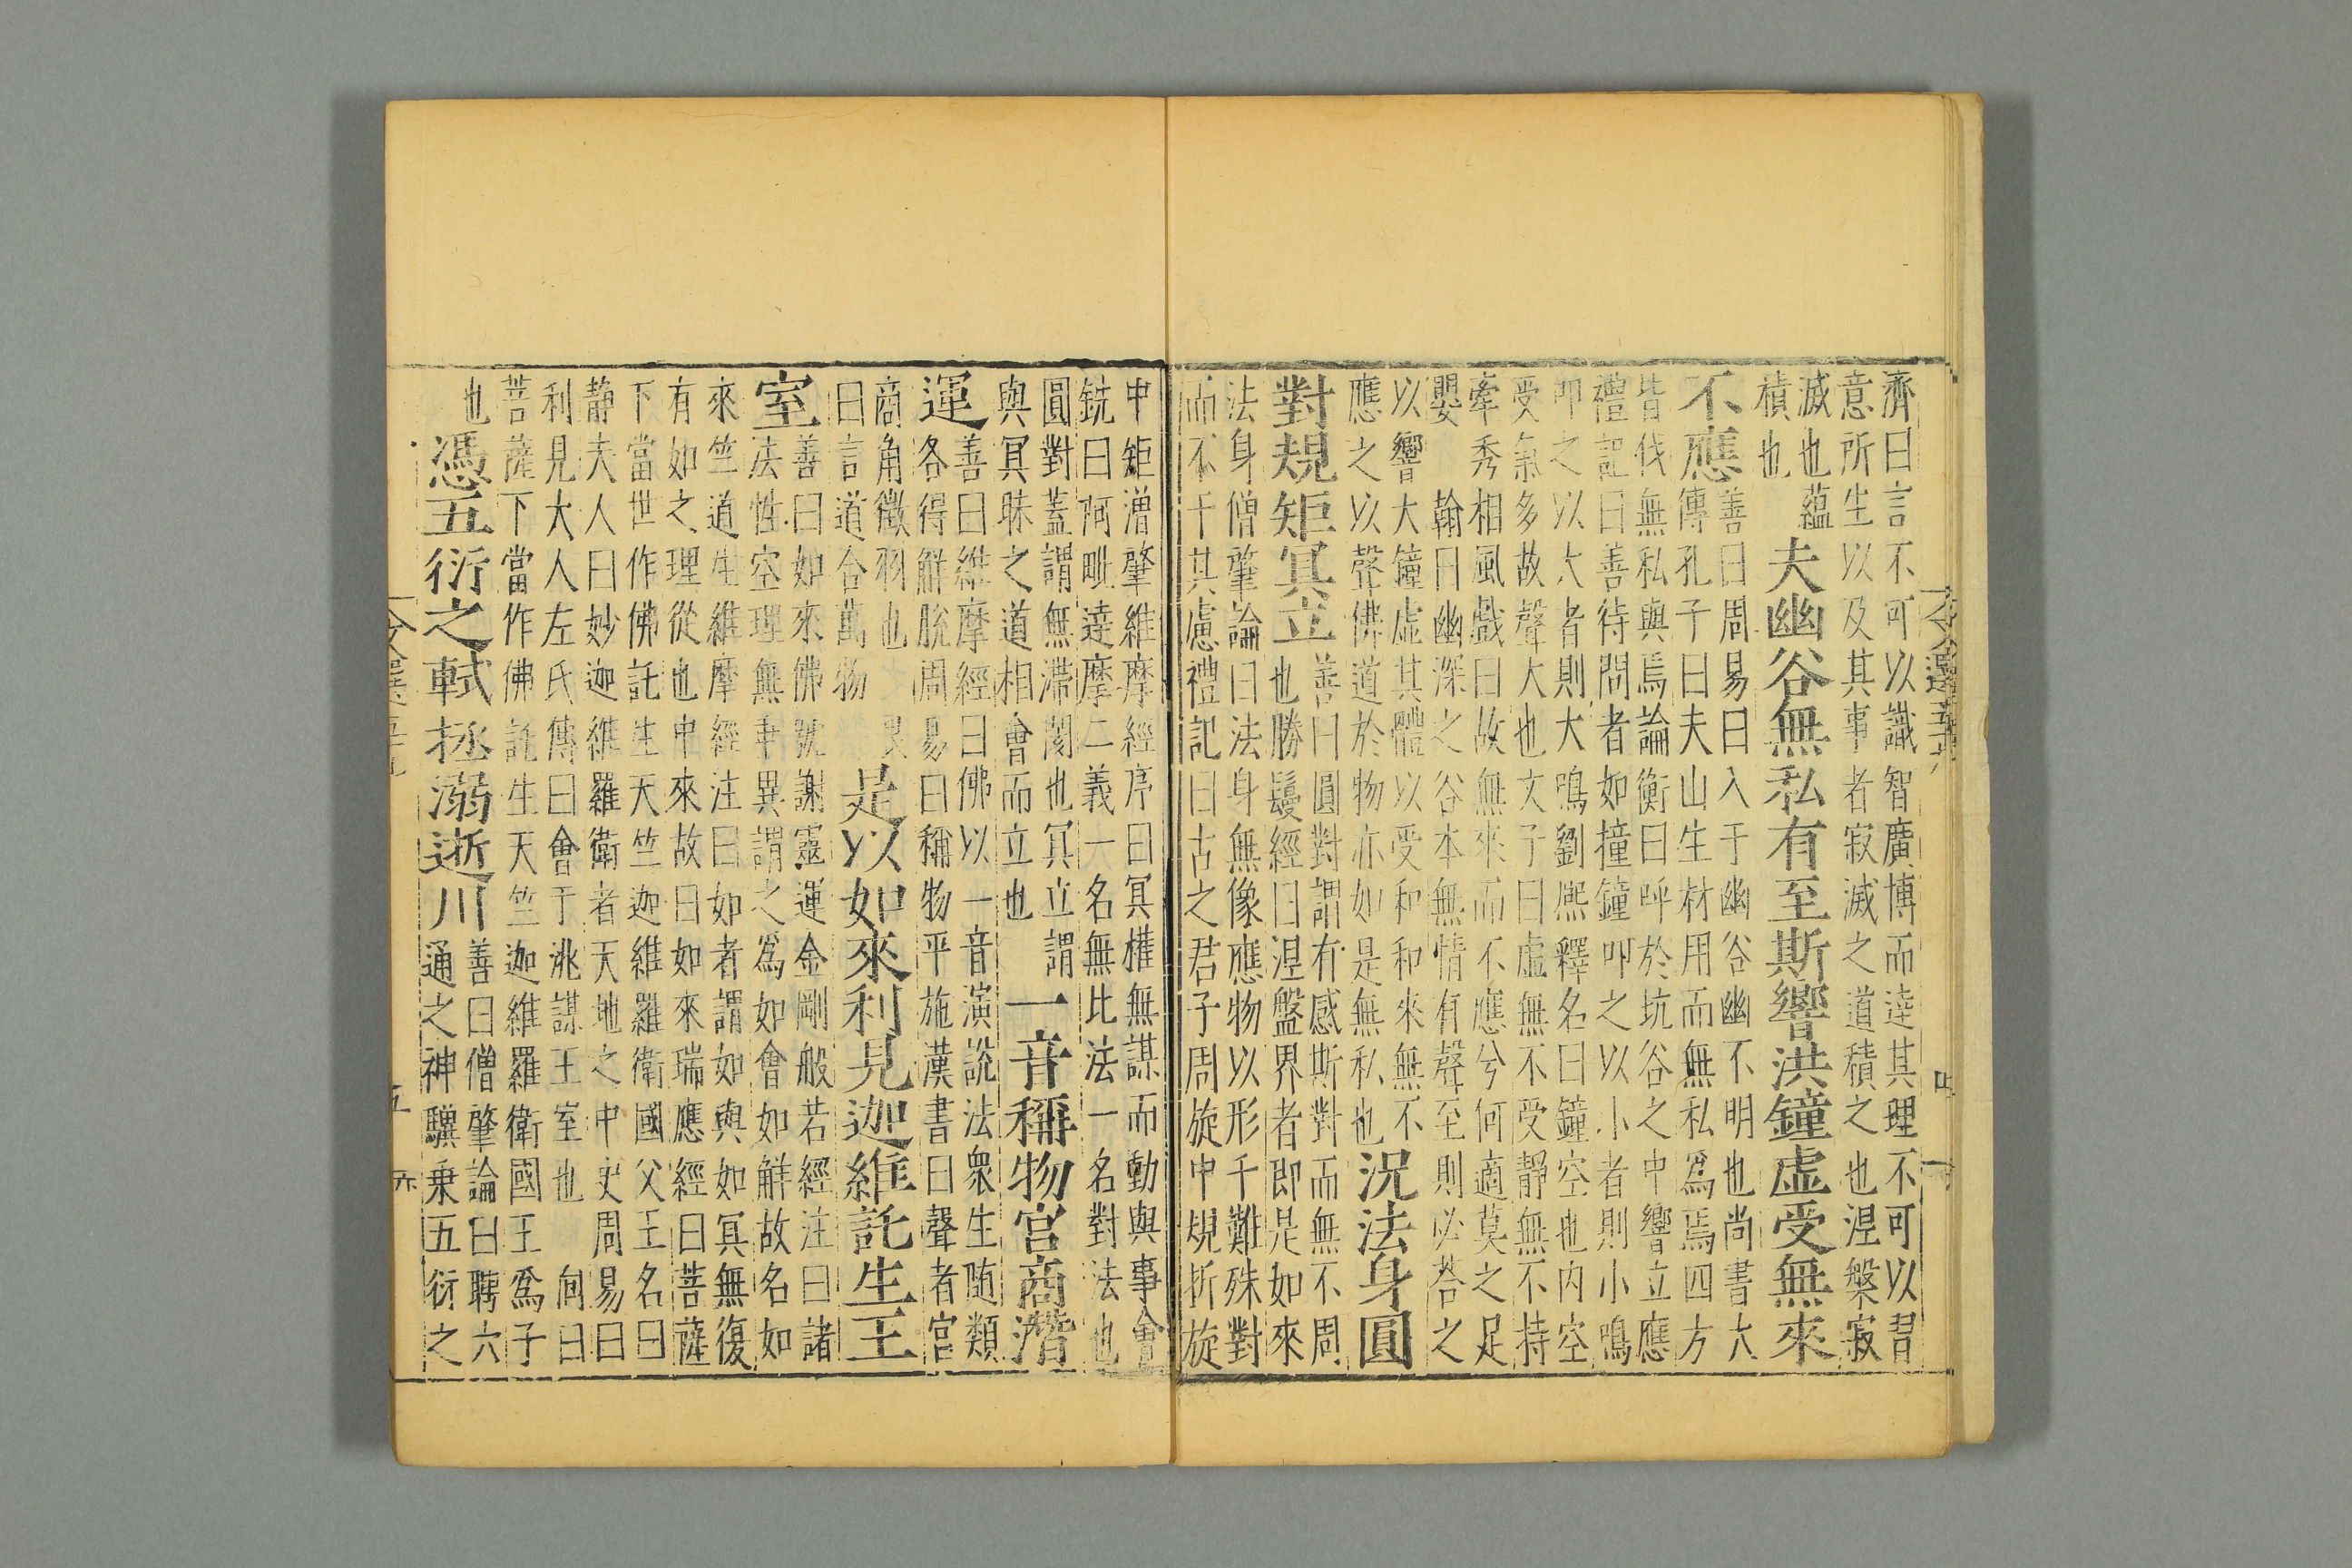 齊曰言不可以識智廣博而達其理不可以㫖
意所生以及其事者寂滅之道積之也涅槃寂
滅也 蘊
積也
夫幽谷無私有至斯響洪鐘虛受無來
不應
善曰周易曰入于幽谷幽不明也尚書大
傳孔子曰夫山生材用而無私爲焉四方
皆伐無私與焉論衡曰呼於坑谷之中響立應
禮記曰善待問者如撞鐘叩之以小者則小鳴
叩之以大者則大鳴劉熙釋名曰鐘空也内空
受氣多故聲大也文子曰虛無不受靜無不持
牽秀相風戲曰故無來而不應兮何適莫之足
嬰 翰曰幽深之谷本無情有聲至則必荅之
以響大鐘虛其體以受和和來無不
應之以聲佛道於物亦如是無私也
況法身圓
對規矩冥立
善曰圓對謂有感斯對而無不周
也勝鬘經曰涅盤界者即是如來
法身僧肇論曰法身無像應物以形千難殊對
而不干其慮禮記曰古之君子周旋中規折旋
中矩澘肇維摩經序曰冥權無謀而動與事會
銑曰阿毗達摩二義一名無比法一名對法也
圓對蓋謂無滯閡也冥立謂
與冥昧之道相會而立也
一音稱物宫商潛
運
善曰維摩經曰佛以一音演說法衆生随類
各得解脫周易曰稱物平施漢書曰聲者宫
商角徵羽也
曰言道合萬物
是以如來利見迦維託生王
室
善曰如來佛號謝靈運金剛般若經注曰諸
法性空理無乖異謂之爲如會如解故名如
來竺道生維摩經注曰如者謂如與如冥無復
有如之理從也中來故曰如來瑞應經曰菩薩
下當世作佛託生天竺迦維羅衛國父王名曰
静夫人曰妙迦維羅衛者天地之中史周易曰
利見大人左氏傳曰會于洮謀王室也 向曰
菩薩下當作佛託生天竺迦維羅衛國王爲子
也
憑五衍之軾拯溺逝川
善曰僧肇論曰騁六
通之神驥乗五衍之
文選五十九
五